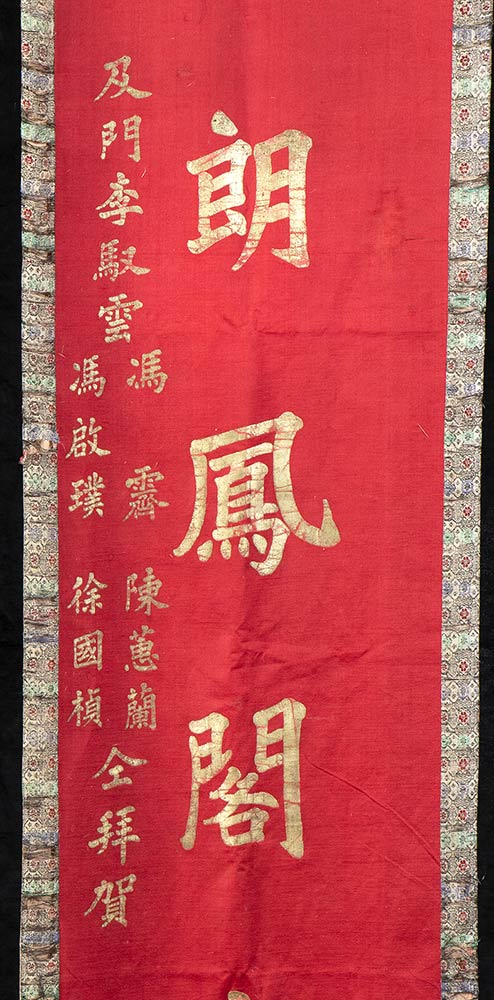 朗鳳閣
及門李馭雲
馮霽 陳蕙蘭
馮啟璞 徐國楨
仝拜賀